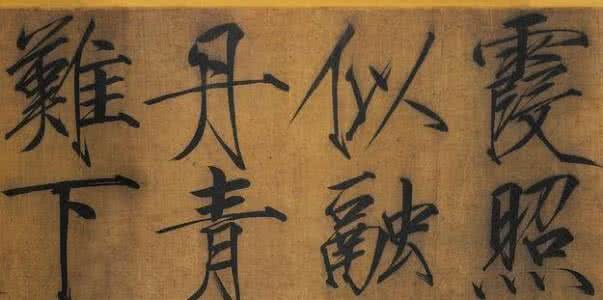 霞照
似融
丹青
難下